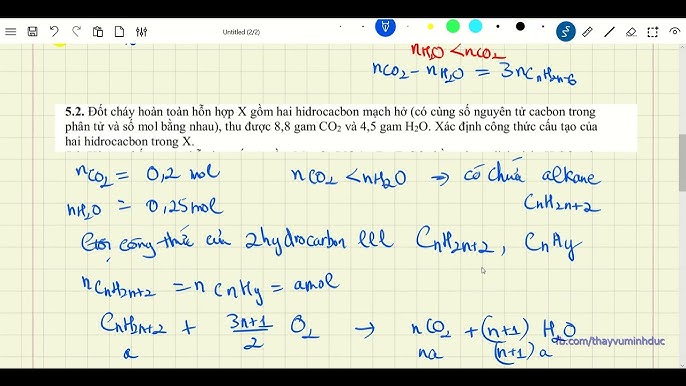 Untitled (2/2)
nH2O < nCO2
nCO2 - nH2O = 3nCnH2n-6
5.2. Đốt cháy hoàn toàn hỗn hợp X gồm hai hidrocacbon mạch hở (có cùng số nguyên tử cacbon trong
phân tử và số mol bằng nhau), thu được 8,8 gam CO2 và 4,5 gam H2O. Xác định công thức cấu tạo của
hai hidrocacbon trong X.
nCO2 = 0,2 mol nCO2 < nH2O → có chứa alkane
nH2O = 0,25 mol CnH2n+2
công thức của 2 hydrocarbon lll CnH2n+2, CnHy
nCnH2n+2 = nCnHy = amol
CnH2n+2 + (3n+1)/2 O2 → nCO2 + (n+1) H2O
fb.com/thayvuminhduc
a na (n+1)a